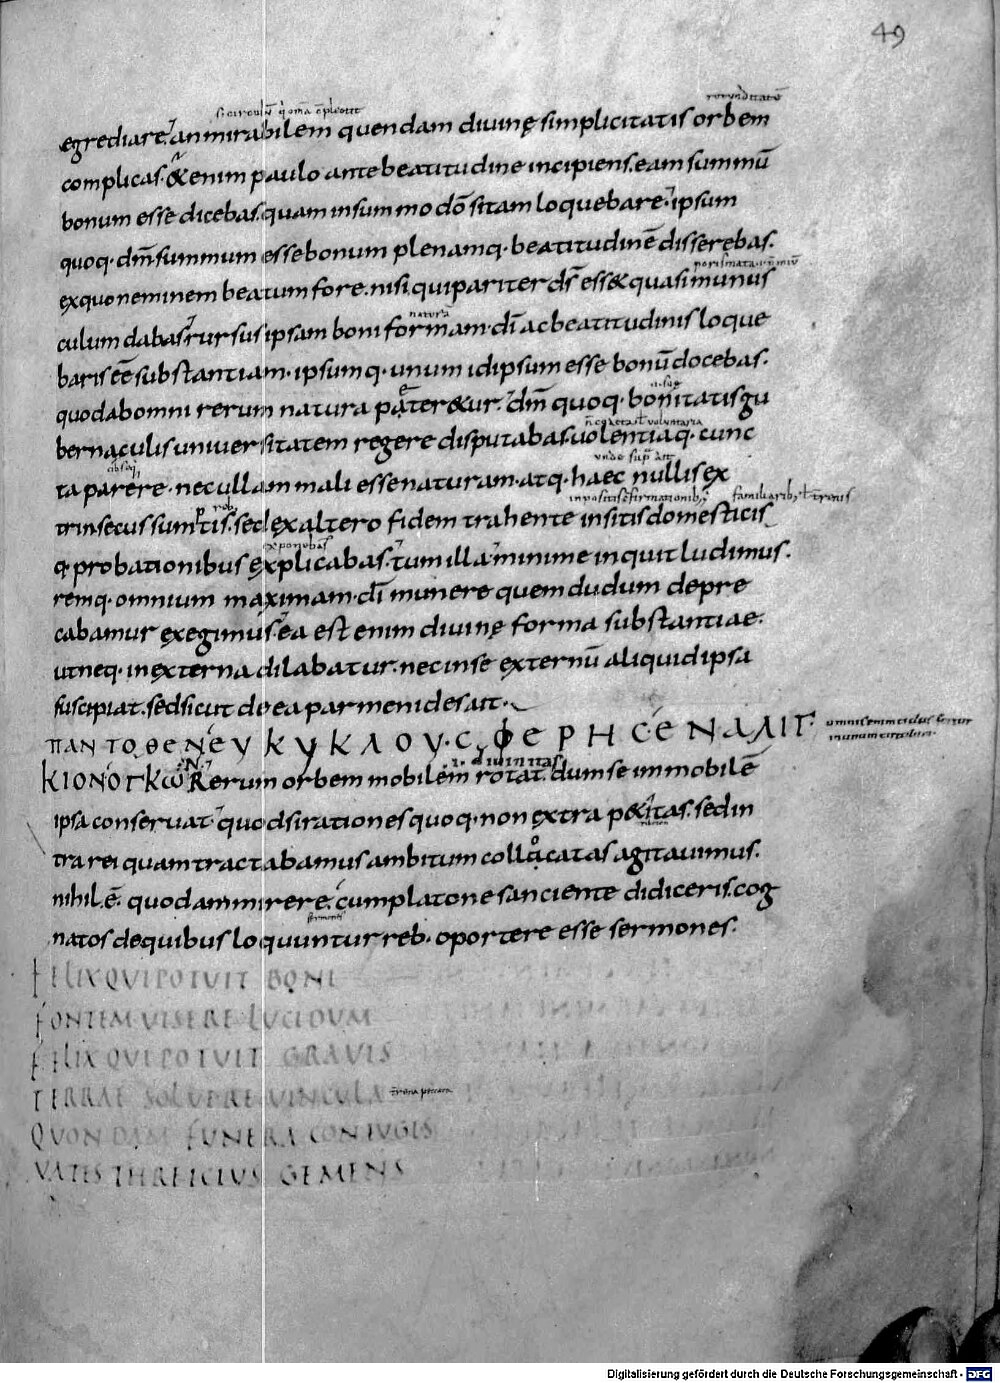 49
rotunditatē
egrediare. an mirabilem quendam divinę simplicitatis orbem
complicas. & enim paulo ante beatitudine incipiens. eam summū
bonum esse dicebas. quam in summo dō sitam loquebare. ipsum
quoq· dm̄ summum esse bonum plenamq· beatitudinē disserebas.
ex quo neminem beatum fore. nisi qui pariter ds̄ ess& quasi munus
natura
culum dabas. rursus ipsam boni formam. dī ac beatitudinis loque
baris eē substantiam. ipsumq· unum id ipsum esse bonū docebas.
quod ab omni rerum natura pater&ur. dm̄ quoq· bonitatis gu
bernaculis universitatem regere disputabas. volentiaq· cunc
ta parere. nec ullam mali esse naturam. atq· haec nullis ex
trinsecus sumtis. sed ex altero fidem trahente insitis domesticis
exponebas
q· probationibus explicabas. tum illa minime inquit ludimus.
remq· omnium maximam. dī munere quem dudum depre
cabamur exegimus. ea est enim divinę forma substantiae.
ut neq· in externa dilabatur. nec in se externū aliquid ipsa
suscipiat. sed sicut de ea parmenides ait.
ΠΑΝΤΟΘΕΝ ΕΥΚΥΚΛΟΥ· Cφερης ΕΝΑΛΙΓ
ΚΙΟΝ ΟΓΚѠ Rerum orbem mobilem rotat. dum se immobilē
ipsa conservat. quod si rationes quoq· non extra p&itas. sed in
tra rei quam tractabamus ambitum collocatas agitavimus.
nihil .ē. quod ammirere. cum platone sanciente didiceris. cog
sermones
natos de quibus loquuntur reb· oportere esse sermones.
FELIX QUI POTUIT BONI
FONTEM VISERE LUCIDUM
FELIX QUI POTUIT GRAVIS
TERRAE SOLVERE VINCULA
QUONDAM FUNERA CONIUGIS
VATES THREICIUS GEMENS
Digitalisierung gefördert durch die Deutsche Forschungsgemeinschaft - DFG